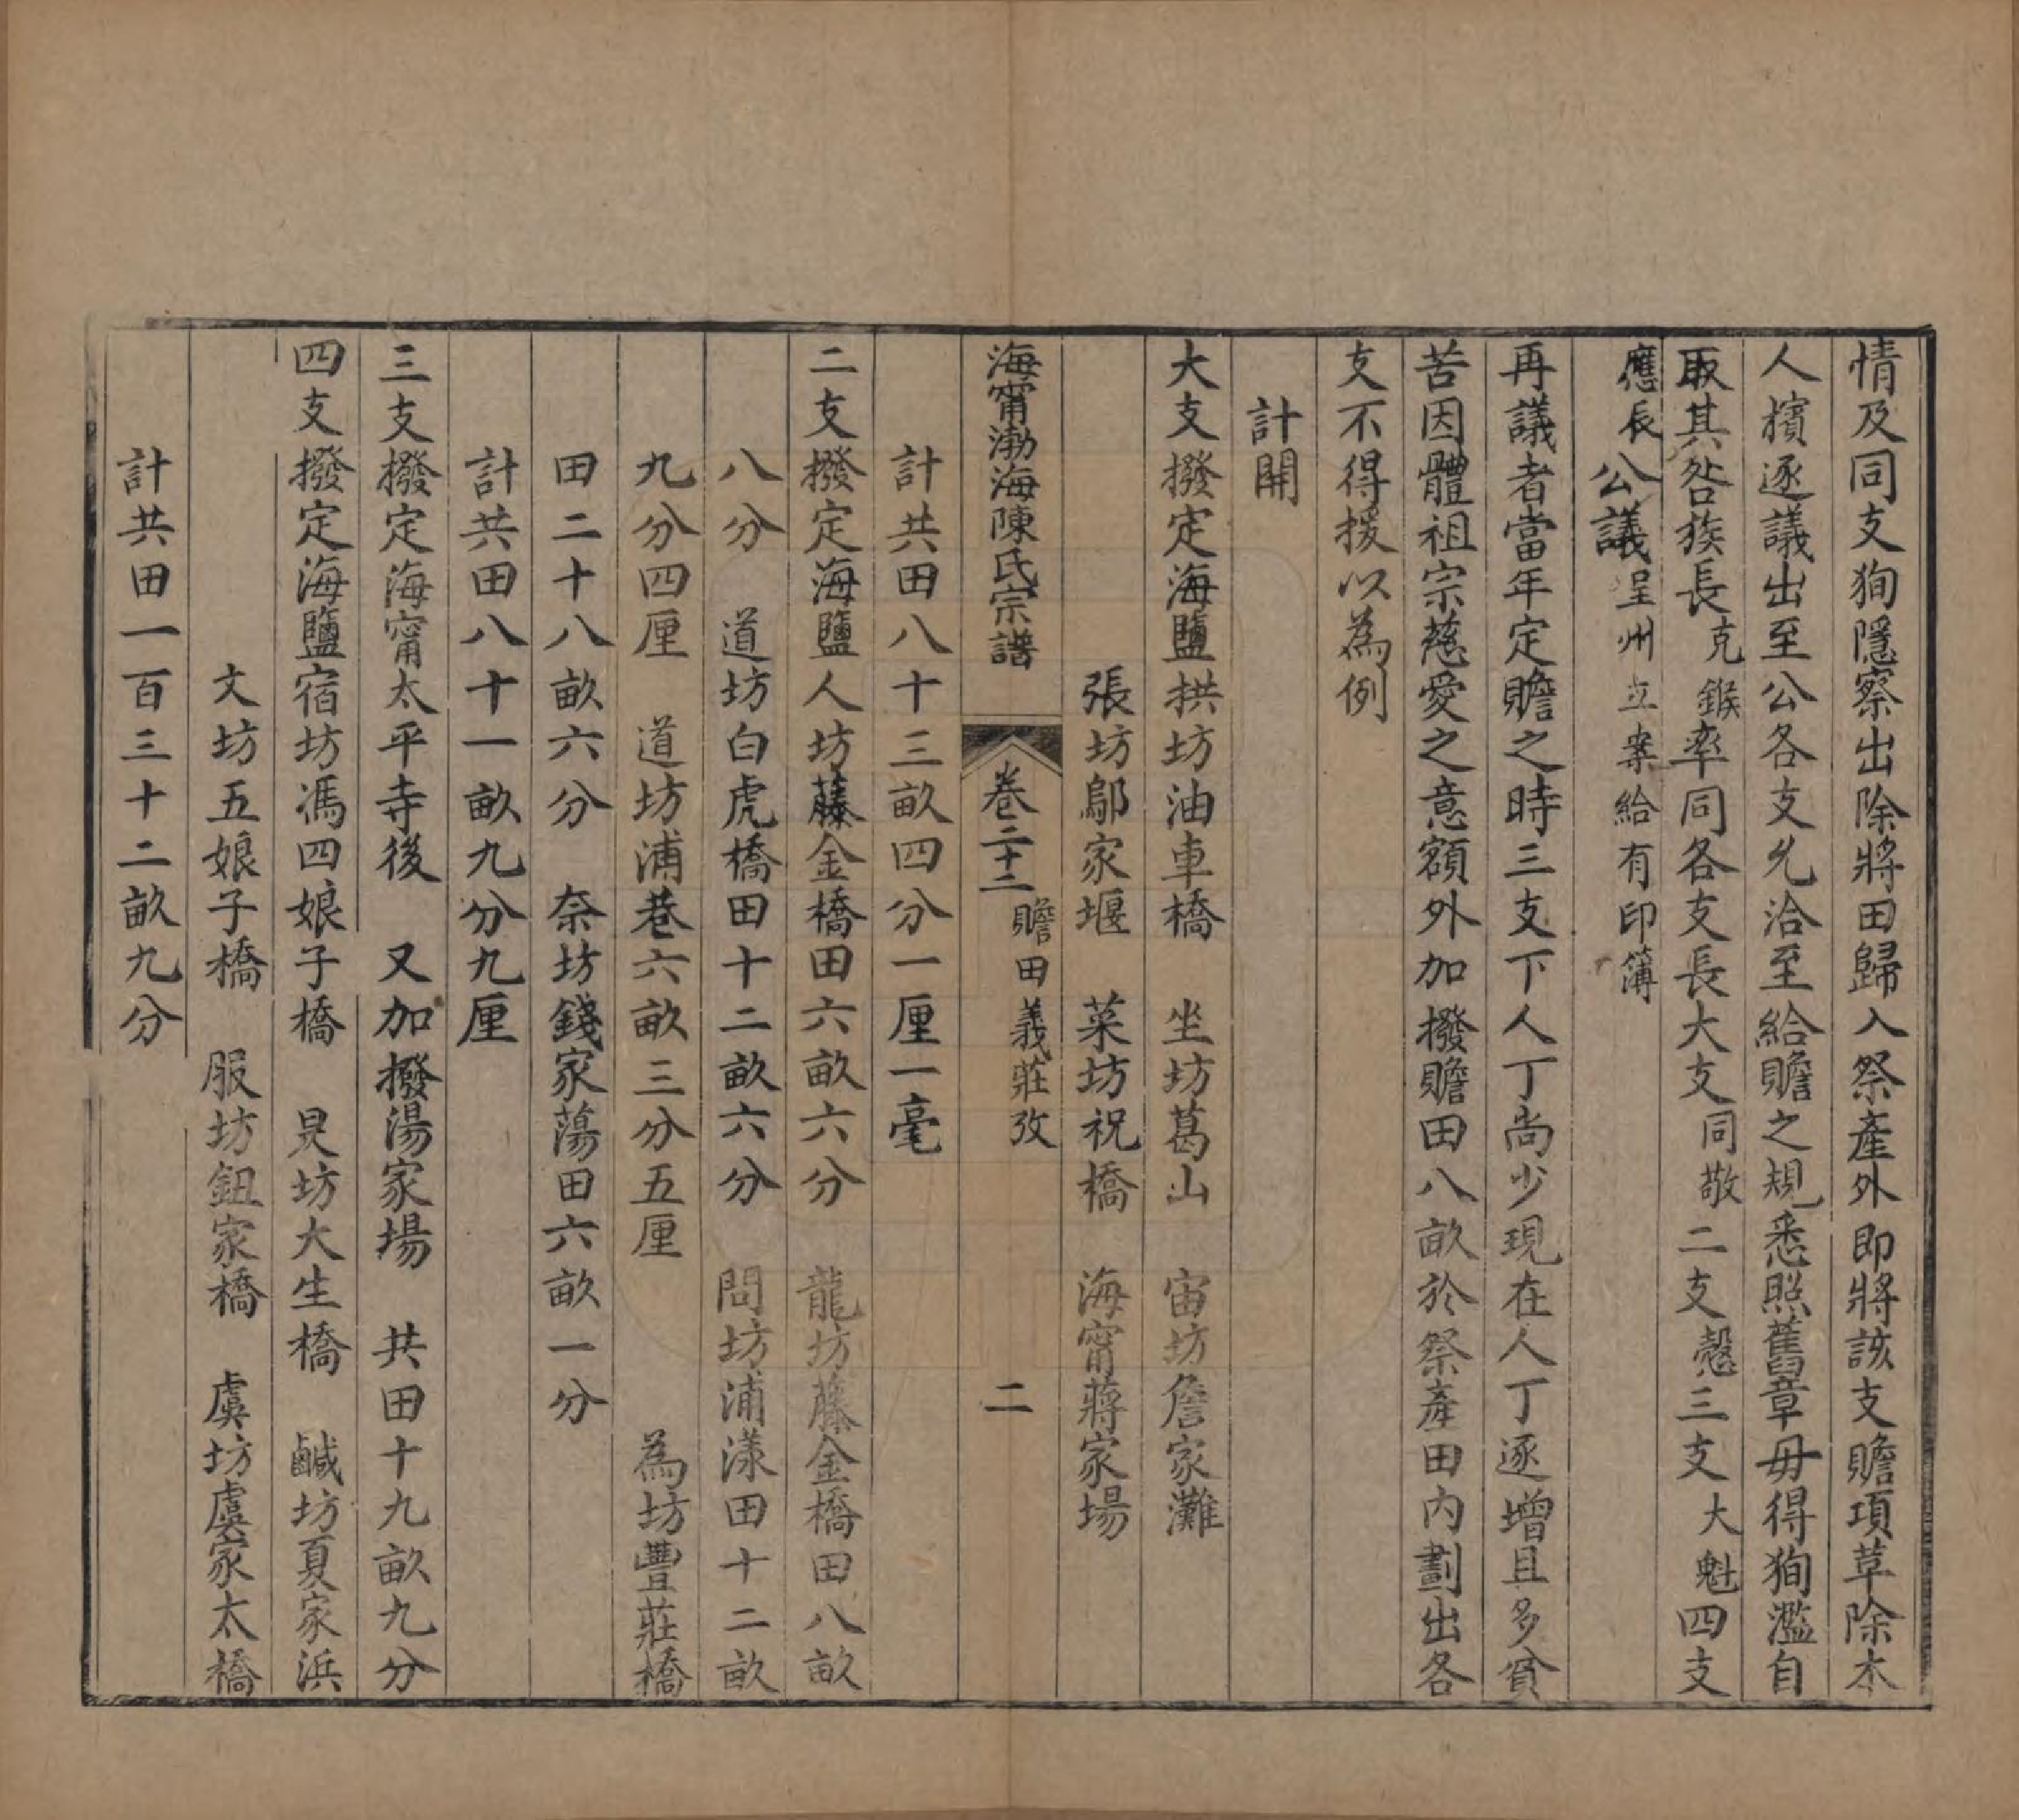 情及同支狥隱察出除將田歸入祭產外即將該支贍項草除本
人擯逐議出至公各支允洽至給贍之規悉照舊章毋得狥濫自
取其咎族長克鍭率同各支長大支同敬二支愨三支大魁四支
應辰公議呈州立案給有印簿
再議者當年定贍之時三支下人丁尚少現在人丁逐增且多貧
苦因體祖宗慈愛之意額外加撥贍田八畝於祭產田內劃出各
支不得援以為例
計開
大支撥定海鹽拱坊油車橋　坐坊葛山　宙坊詹家灘
張坊鄔家堰　菜坊祝橋　海甯蔣家場
海甯渤海陳氏宗譜　卷二十二　贍田義莊攷　二
計共田八十三畝四分一厘一毫
二支撥定海鹽人坊藤金橋田六畝六分　龍坊藤金橋田八畝
八分　道坊白虎橋田十二畝六分　問坊浦漾田十二畝
九分四厘　道坊浦巷六畝三分五厘　為坊豐莊橋
田二十八畝六分　柰坊錢家蕩田六畝一分
計共田八十一畝九分九厘
三支撥定海甯太平寺後　又加撥湯家場　共田十九畝九分
四支撥定海鹽宿坊馮四娘子橋　昃坊大生橋　鹹坊夏家浜
文坊五娘子橋　服坊鈕家橋　虞坊虞家太橋
計共田一百三十二畝九分